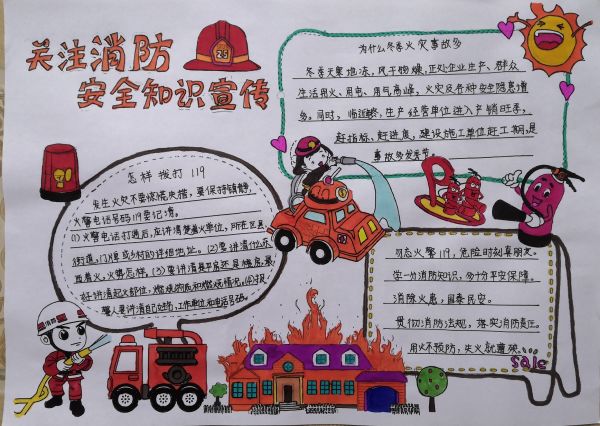 关注消防
安全知识宣传
26
为什么冬季火灾事故多
冬季天寒地冻，风干物燥，正处企业生产、群众
生活用火、用电、用气高峰，火灾及各种安全隐患增
多。同时，临近年终，生产经营单位进入产销旺季，
赶指标、赶进度，建设施工单位赶工期，是
事故多发季节。
怎样拨打119
发生火灾不要惊慌失措，要保持镇静，
火警电话号码119要记清。
(1)火警电话打通后，应讲清楚着火单位，所在区县、
街道、门牌或乡村的详细地址。(2)要讲清什么东
西着火，火势怎样。(3)要讲清是平房还是楼房，最
好讲清起火部位，燃烧物质和燃烧情况。(4)报
警人要讲清自己姓名、工作单位和电话号码。
勿忘火警119，危险时刻真朋友。
学一分消防知识，多十分平安保障。
消除火患，国泰民安。
贯彻消防法规，落实消防责任。
用火不预防，失火就遭殃。
sale